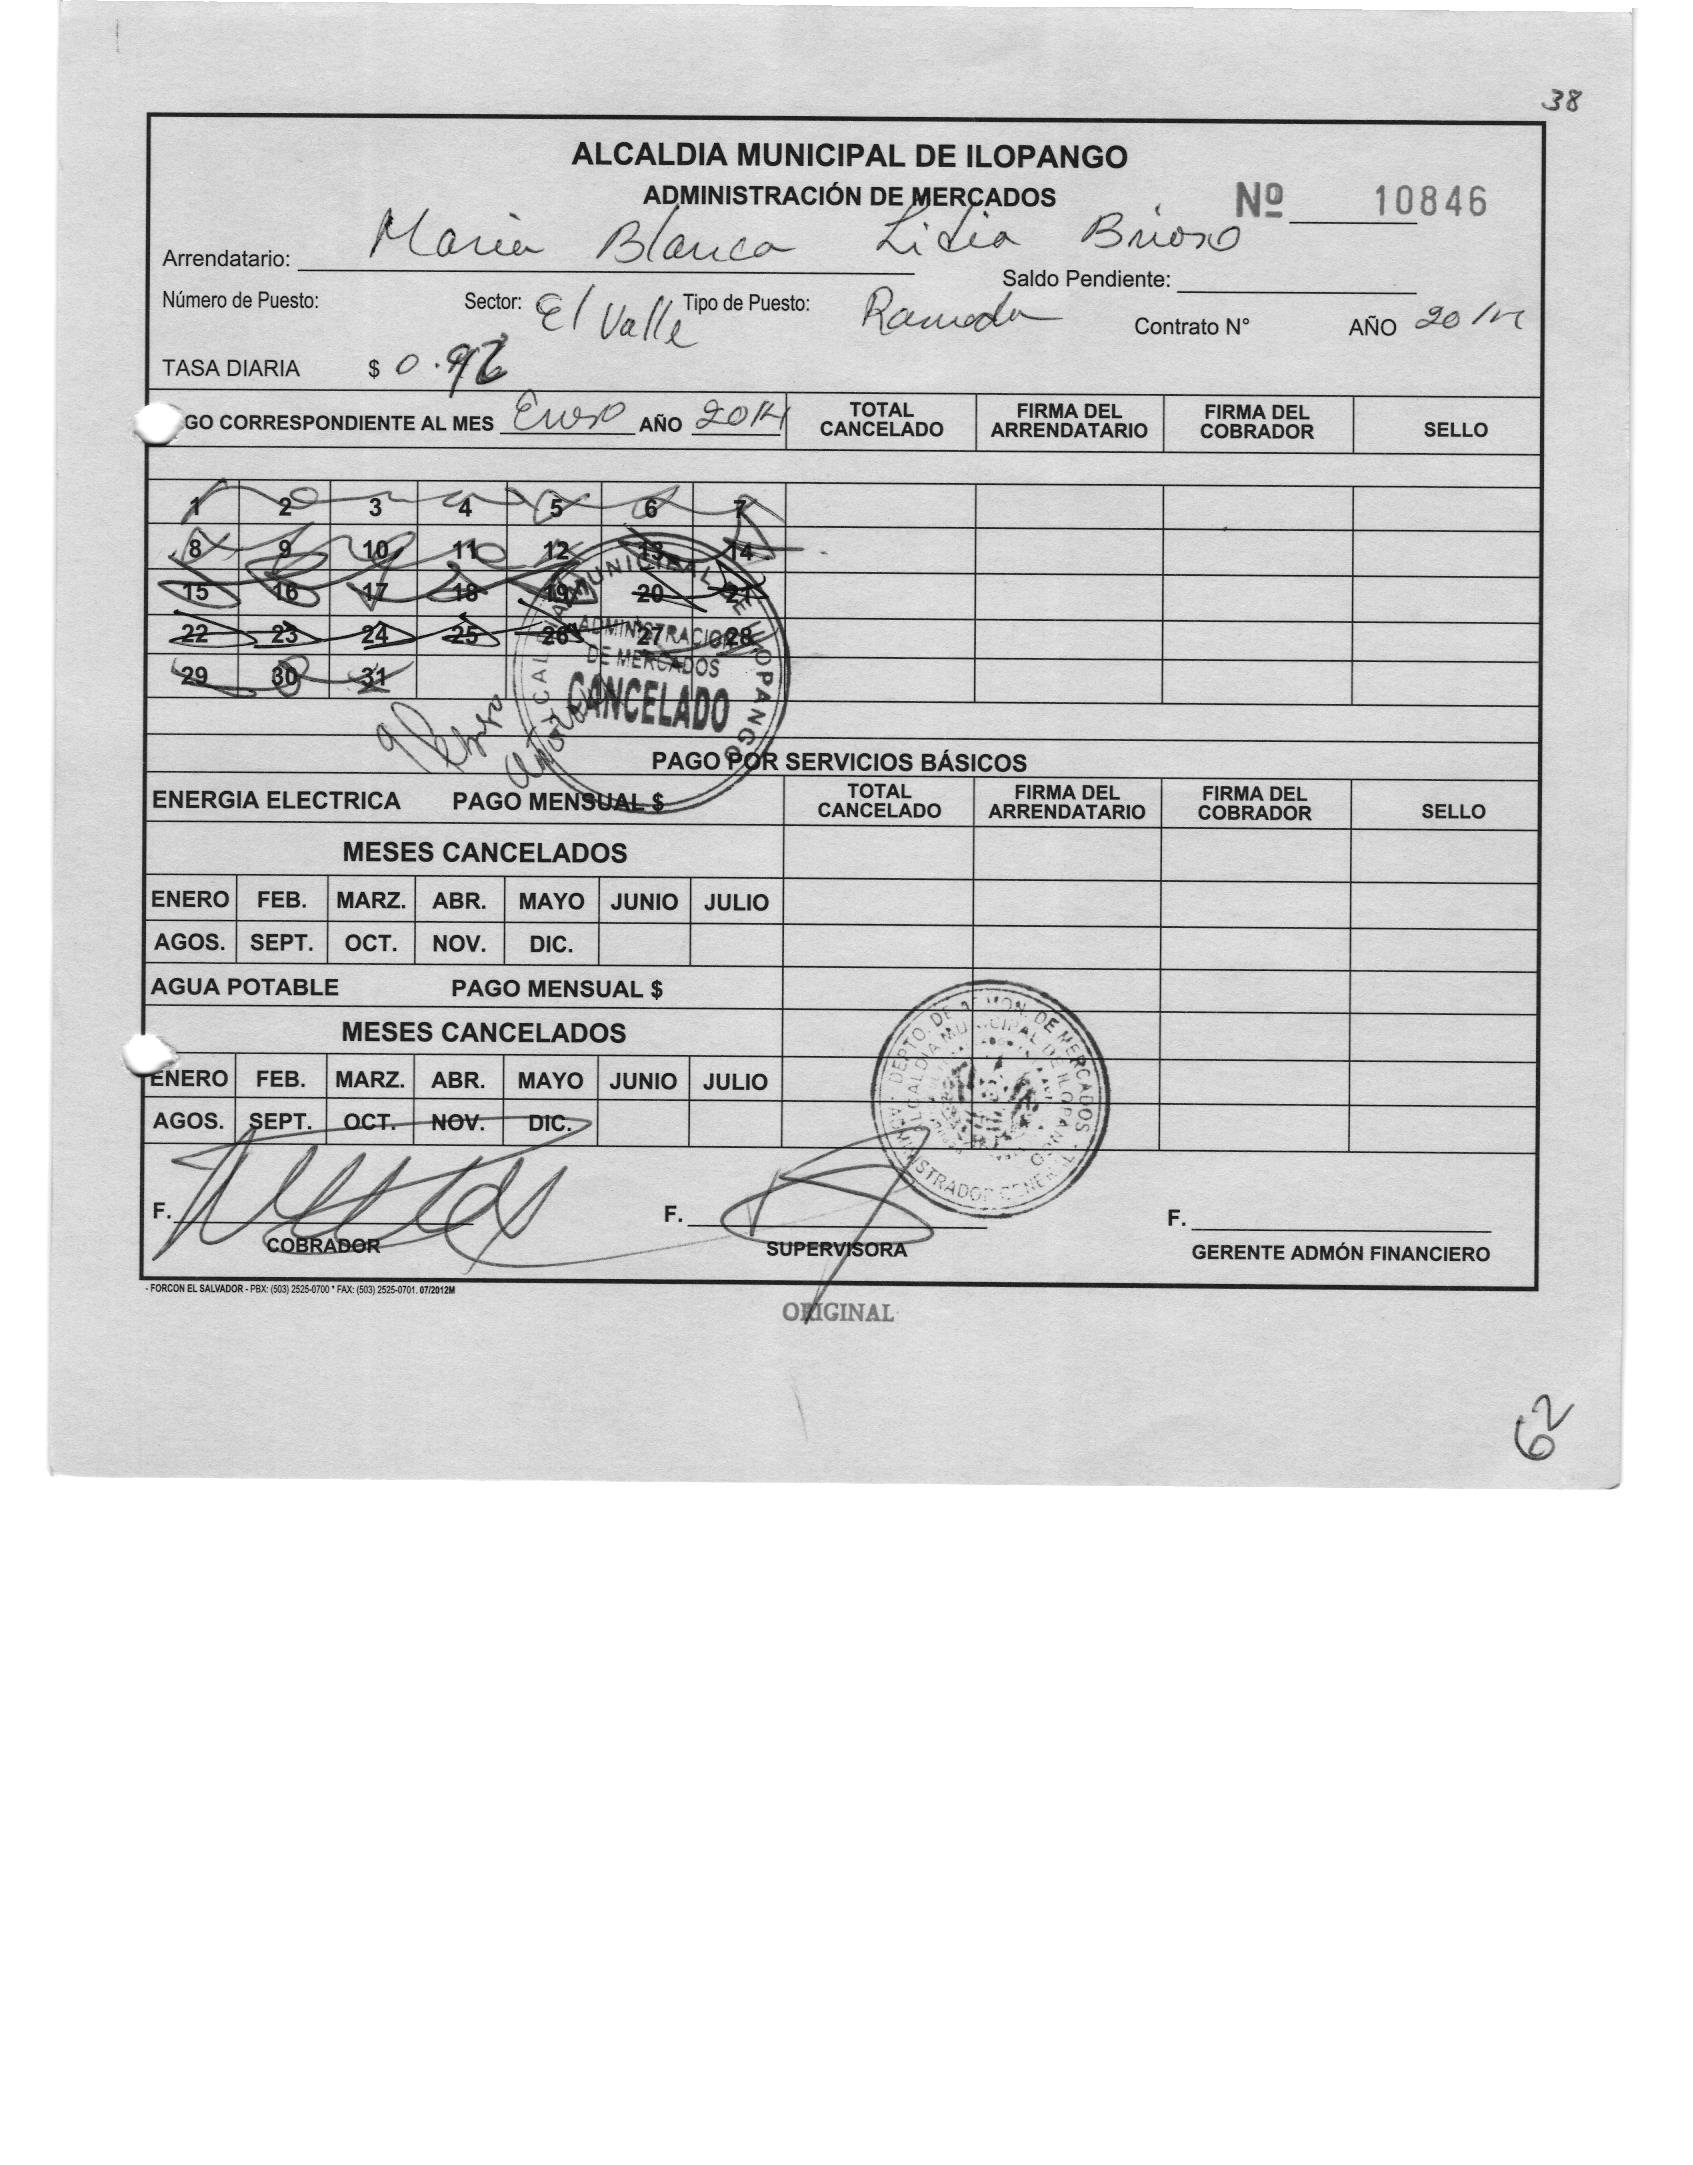 38
ALCALDIA MUNICIPAL DE ILOPANGO
ADMINISTRACIÓN DE MERCADOS
Nº 10846
Arrendatario: Maria Blanca Lidia Brioso
Saldo Pendiente:
Número de Puesto: Sector: El Valle Tipo de Puesto: Ramada Contrato N° AÑO 2014
TASA DIARIA $ 0.
GO CORRESPONDIENTE AL MES Enero AÑO 2014 TOTAL CANCELADO FIRMA DEL ARRENDATARIO FIRMA DEL COBRADOR SELLO
1 2 3 4 5 6 7
8 9 10 11 12 13 14
15 16 17 18 19 20 21
22 23 24 25 26 27 28
29 30 31
ALCALDIA MUNICIPAL DE ILOPANGO
ADMINISTRACION
DE MERCADOS
CANCELADO
PAGO POR SERVICIOS BÁSICOS
ENERGIA ELECTRICA PAGO MENSUAL $ TOTAL CANCELADO FIRMA DEL ARRENDATARIO FIRMA DEL COBRADOR SELLO
MESES CANCELADOS
ENERO FEB. MARZ. ABR. MAYO JUNIO JULIO
AGOS. SEPT. OCT. NOV. DIC.
AGUA POTABLE PAGO MENSUAL $
MESES CANCELADOS
ENERO FEB. MARZ. ABR. MAYO JUNIO JULIO
AGOS. SEPT. OCT. NOV. DIC.
DEPTO. DE ADMON. DE MERCADOS
ALCALDIA MUNICIPAL DE ILOPANGO
ADMINISTRADOR GENERAL
F. F. F.
COBRADOR SUPERVISORA GERENTE ADMÓN FINANCIERO
- FORCON EL SALVADOR - PBX: (503) 2525-0700 * FAX: (503) 2525-0701. 07/2012M
ORIGINAL
62